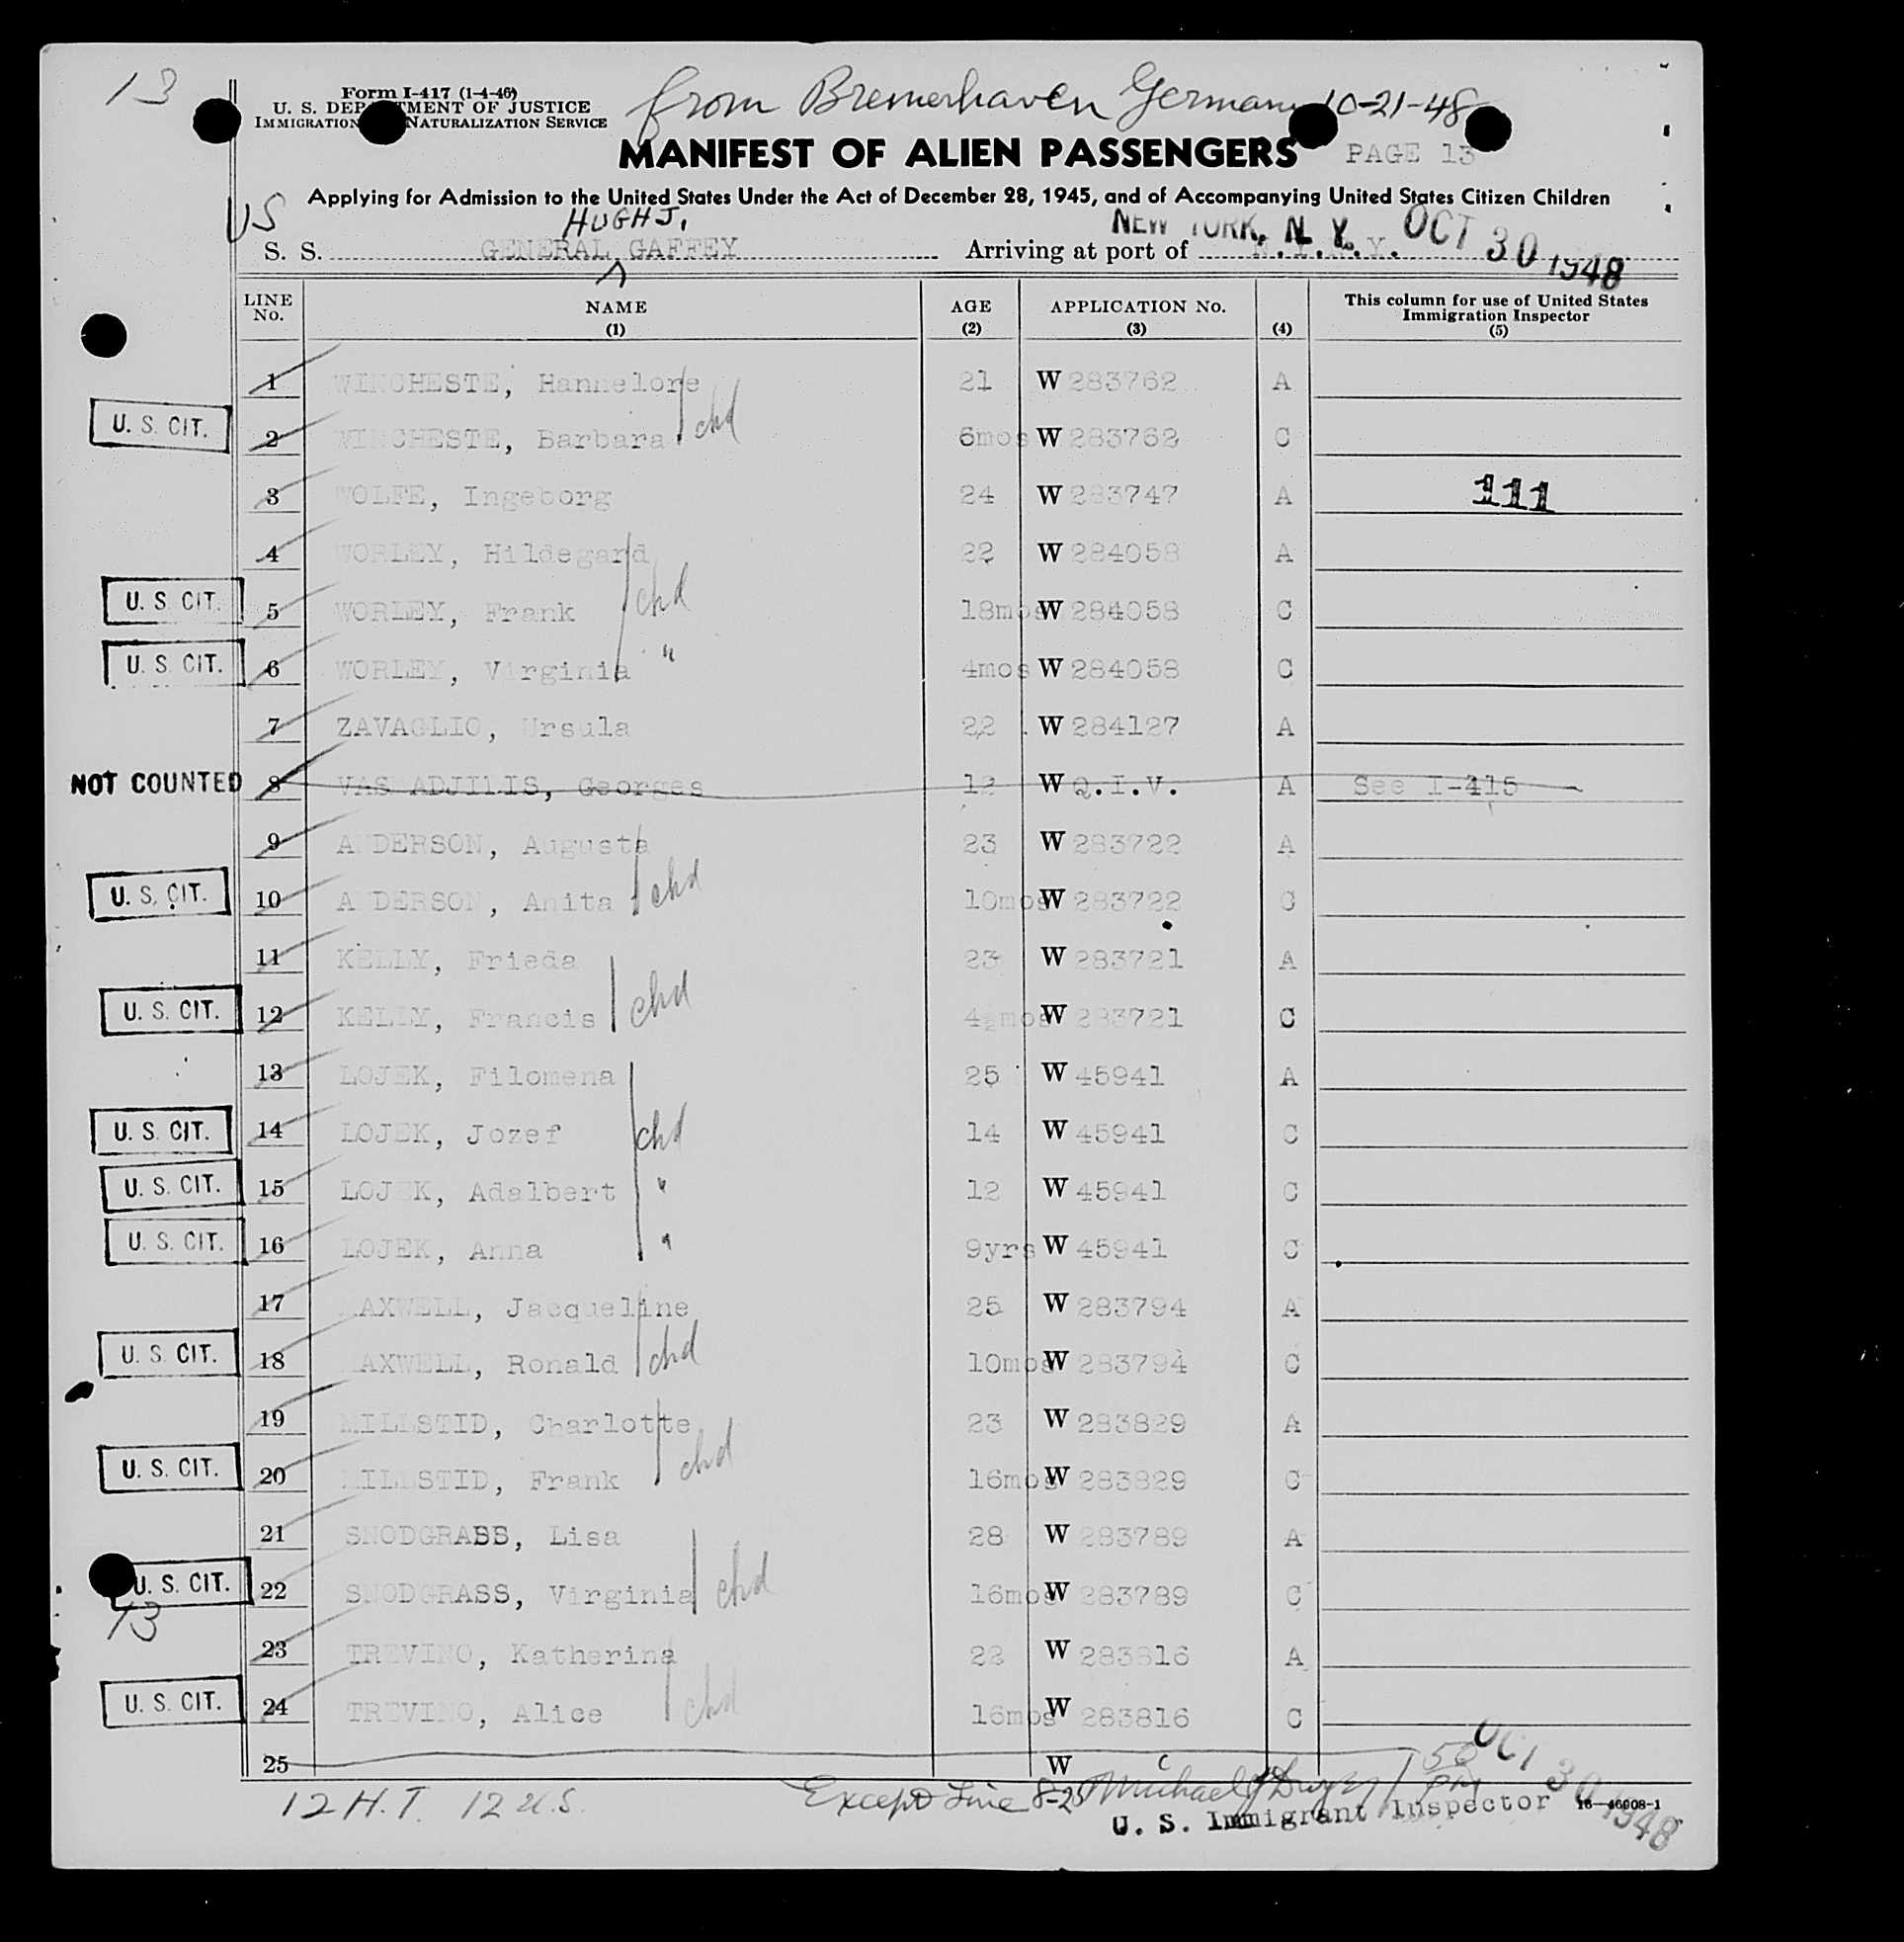 13
Form I-417 (1-4-46)
U. S. DEPARTMENT OF JUSTICE
IMMIGRATION NATURALIZATION SERVICE
from Bremerhaven Germany 10-21-48
MANIFEST OF ALIEN PASSENGERS PAGE 13
Applying for Admission to the United States Under the Act of December 28, 1945, and of Accompanying United States Citizen Children
US HUGH J. NEW YORK, N. Y. OCT 30 1948
S. S. GENERAL ^ GAFFEY Arriving at port of N.Y.N.Y.
LINE No. NAME (1) AGE (2) APPLICATION No. (3) (4) This column for use of United States Immigration Inspector (5)
1 WINCHESTE, Hannelore 21 W 283762 A
U. S. CIT. 2 WINCHESTE, Barbara chd 6mos W 283762 C
3 WOLFE, Ingeborg 24 W 283747 A 111
4 WORLEY, Hildegard 22 W 284058 A
U. S. CIT. 5 WORLEY, Frank chd 18mos W 284058 C
U. S. CIT. 6 WORLEY, Virginia " 4mos W 284058 C
7 ZAVAGLIO, Ursula 22 W 284127 A
NOT COUNTED 8 VAS ADJILIS, Georges 12 W Q.I.V. A See I-415
9 ANDERSON, Augusta 23 W 283722 A
U. S. CIT. 10 ANDERSON, Anita chd 10mos W 283722 C
11 KELLY, Frieda 23 W 283721 A
U. S. CIT. 12 KELLY, Francis chd 4½mos W 283721 C
13 LOJEK, Filomena 25 W 45941 A
U. S. CIT. 14 LOJEK, Jozef chd 14 W 45941 C
U. S. CIT. 15 LOJEK, Adalbert " 12 W 45941 C
U. S. CIT. 16 LOJEK, Anna " 9yrs W 45941 C
17 MAXWELL, Jacqueline 25 W 283794 A
U. S. CIT. 18 MAXWELL, Ronald chd 10mos W 283794 C
19 MILLSTID, Charlotte 23 W 283829 A
U. S. CIT. 20 MILLSTID, Frank chd 16mos W 283829 C
21 SNODGRASS, Lisa 28 W 283789 A
U. S. CIT. 22 SNODGRASS, Virginia chd 16mos W 283789 C
13
23 TREVINO, Katherina 22 W 283816 A
U. S. CIT. 24 TREVINO, Alice chd 16mos W 283816 C
25 W
12 H.T. 12 U.S. Except Line 8-25 Michael J Dwyer 1 50 PM OCT 30 1948
U. S. Immigrant Inspector 16—46908-1